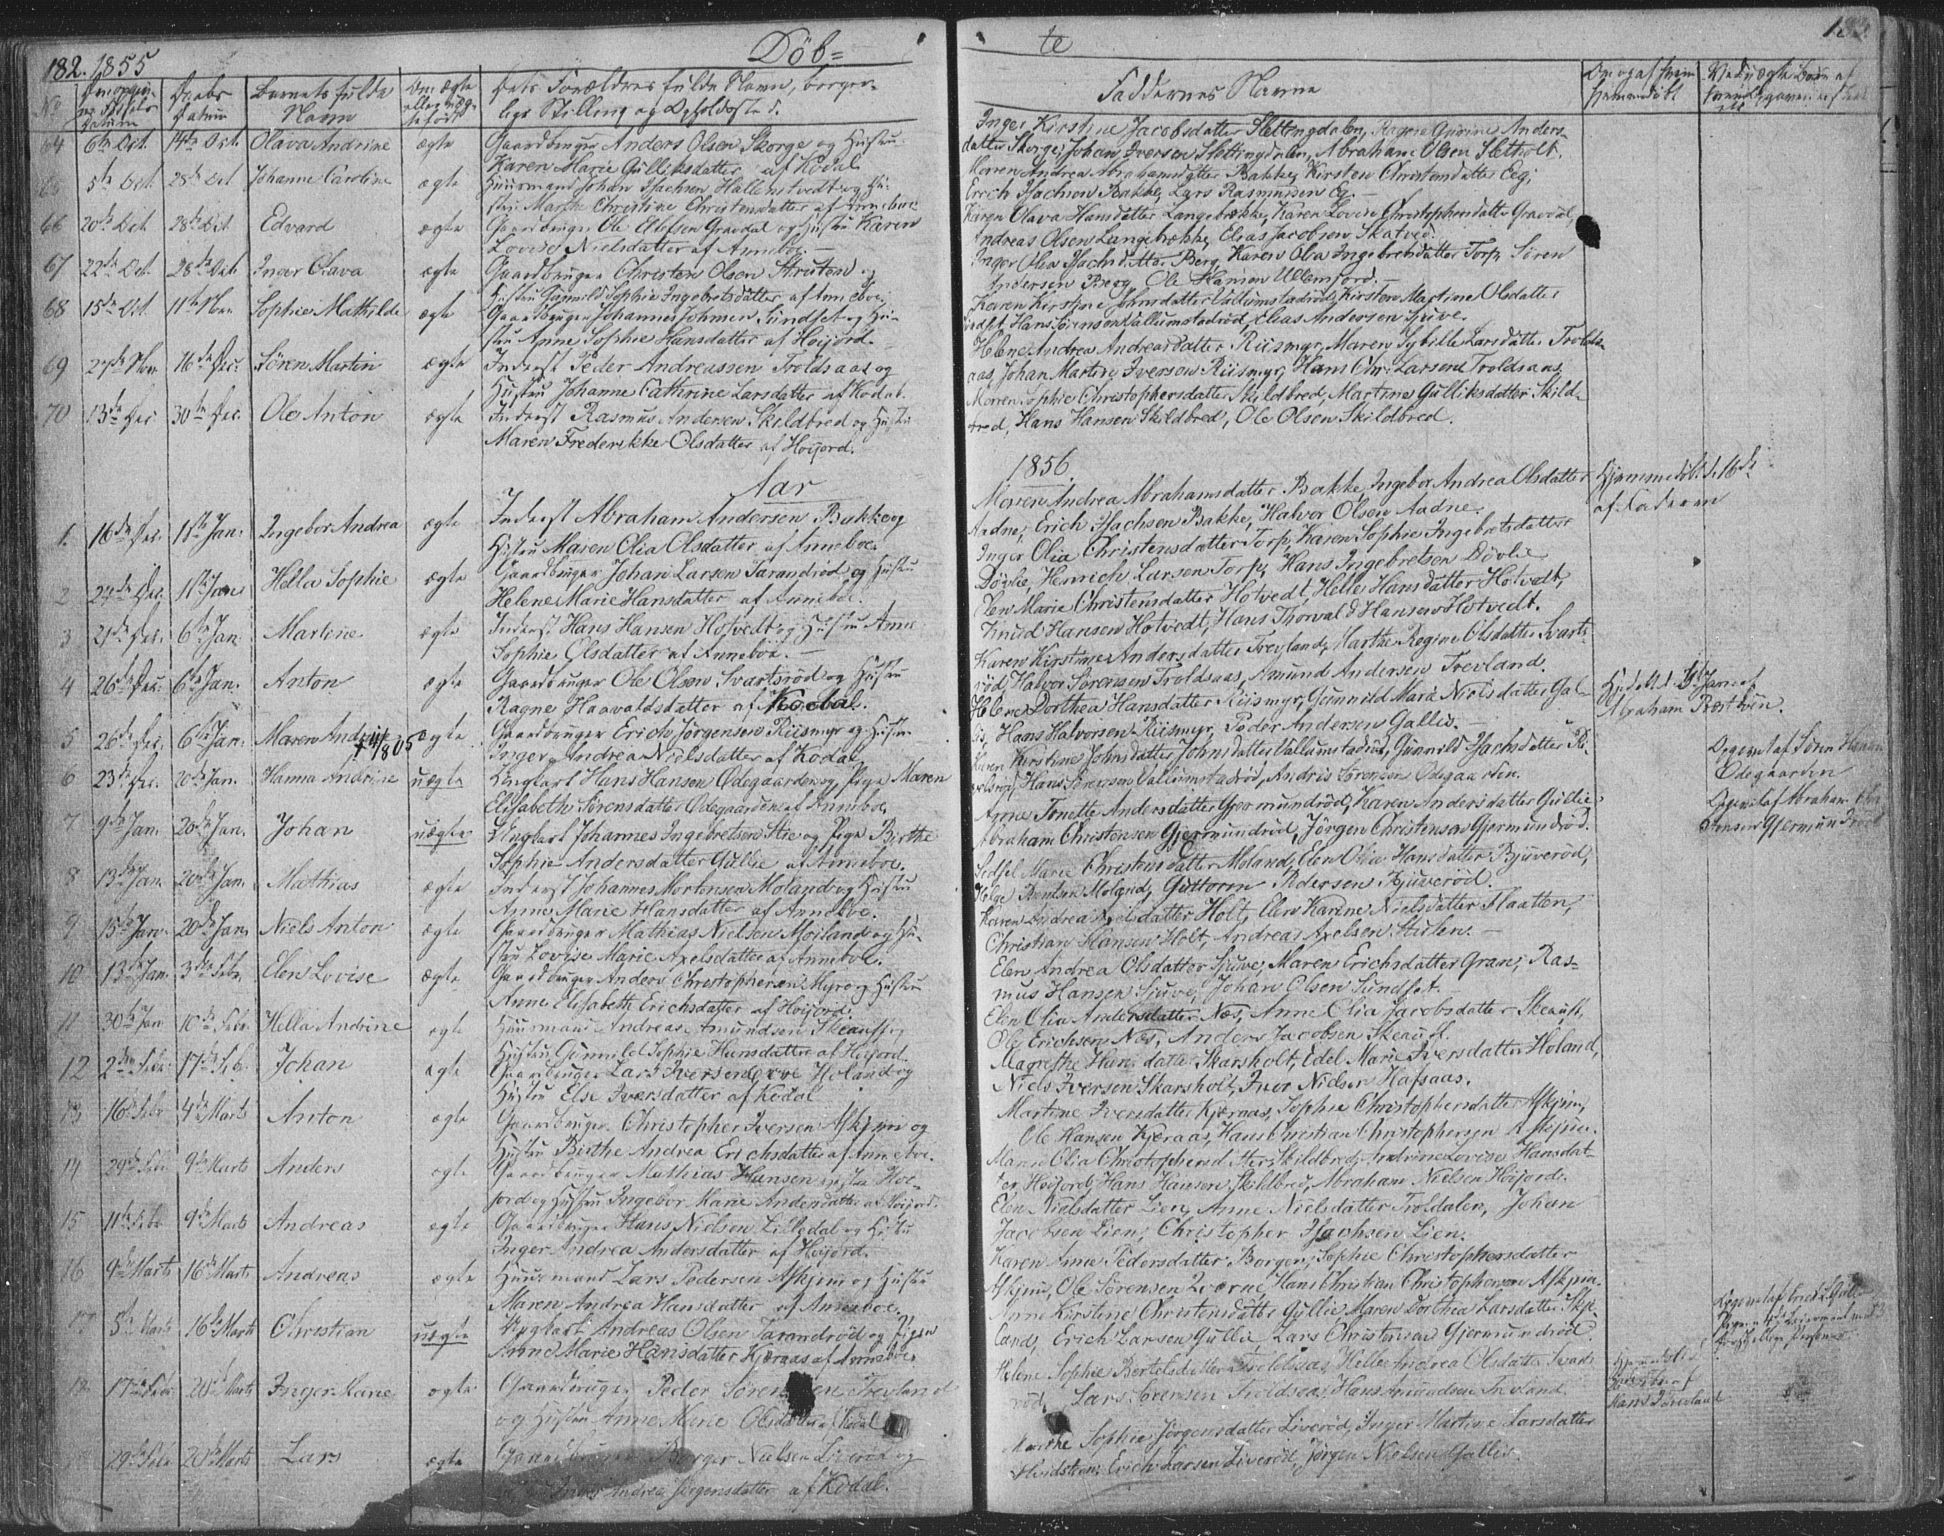 182. 1855 Döb=
No Datum Daabs Datum Barnets fulde Navn Om ægte eller uægte født Dets Forældres fulde Navn, borgerlige Stilling og Opholdssted.
64 6te Oct. 14de Oct. Olava Andrine ægte Gaardbruger Anders Olsen Skorge og Hustru
Karen Marie Gulliksdatter af Kodal
5te Oct 28de Oct Johanne Caroline ægte Huusmand Johan Isachsen Hallenstvedt og Hu-
stru Marthe Christine Christensdatter af Anneboe.
66 20de Oct 28de Oct Edvard ægte Gaardbruger Ole Ellefsen Gravdal og Hustru Karen
Lovise Nielsdatter af Anneboe.—
67 22de Oct. 28de Oct. Inger Olava ægte Gaardbruger Christen Olsen og
Hustru Gunnild Sophie Ingebretsdatter af Anneboe.
68 15de Oct. 11te Nov Sophie Mathilde ægte Gaardbruger Johannes Johnsen Sundset og Hu-
stru Anne Sophie Hansdatter af Höijord.
69 27de Nov 16de Dec. Sören Martin ægte Inderst Peder Andreassen Troldsaas og
Hustru Johanne Cathrine Larsdatter af Kodal.
70 13de Dec 30te Dec. Ole Anton ægte Inderst Rasmus Andersen Skildbred og Hustru
Maren Frederikke Olsdatter af Höijord.
Aar
1. 16de Dec. 1ste Jan. Ingebor Andrea ægte Inderst Abraham Andersen Bakke og
Hustru Maren Olia Olsdatter af Anneboe.
2 27de Dec. 1ste Jan Hella Sophie ægte Gaardbruger Johan Larsen Tarandröd og Hustru
Helene Marie Hansdatter af Anneboe.
3 21de Dec. 6te Jan. Martine ægte Inderst Hans Hansen Hotvedt og Hustru Anne
Sophie Olsdatter af Anneboe.—
4 26de Dec. 6te Jan. Anton ægte Gaardbruger Ole Olsen Svartsröd og Hustru
Ragne Haavaldsdatter af Kodal.
5 26de Dec. 6te Jan. Maren Andrine ægte Gaardbruger Erich Jörgensen Riismyr og Hustru
Inger Andrea Nielsdatter af Kodal
6 23de Dec. 20de Jan. Hanna Andrine uægte Ungkarl Hans Hansen Ödegaarden og Pige Maren
Elisabeth Sörensdatter Ödegaarden af Anneboe
7 9de Jan. 20de Jan. Johan uægte Ungkarl Johannes Ingebretsen Stie og Pige Birthe
Sophie Andersdatter Gullie af Anneboe.
8 13de Jan. 20de Jan. Mathias ægte Inderst Johannes Mortensen Moland og Hustru
Anne Marie Hansdatter af Anneboe.
9 15de Jan. 20de Jan. Niels Anton ægte Gaardbruger Mathias Nielsen Moiland og Hu-
stru Lovise Marie Axelsdatter af Anneboe.
10 13de Jan. 3die Febr. Elen Lovise ægte Gaardbruger Anders Christophersen Myre og Hustru
Anne Elisabeth Erichsdatter af Höijord.
11 30te Jan 10de Febr. Hella Andrine ægte Huusmand Andreas Amundsen Skeaust og
Hustru Gunnild Sophie Hansdatter af Höijord.
12 2den Febr. 17de Febr. Johan ægte Gaardbruger Lars Iversen Holand og
Hustru Else Iversdatter af Kodal
13 16de Febr 4de Marts Anton ægte Gaardbruger Christopher Iversen Askjem og
Hustru Birthe Andrea Erichsdatter af Anneboe.
14 29de Febr 9de Marts Anders ægte Gaardbruger Mathias Hansen Höi-
jord og Hustru Ingebor Marie Andersdatter af Höijord.
15 11te Febr 9de Marts Andreas ægte Gaardbruger Hans Nielsen Lilledal og Hustru
Inger Andrea Andersdatter af Höijord.
16 9de Marts 16de Marts Andreas ægte Huusmand Lars Pedersen Askjem og Hustru
Maren Andrea Hansdatter af Anneboe.
17 5te Marts 16de Marts Christian uægte Ungkarl Andreas Olsen Tarandröd og Pigen
Anne Marie Hansdatter Kjæraas af Anneboe.
18 17de Febr 20de Marts Inger Marie ægte Gaardbruger Peder Sörensen Trevland
og Hustru Anne Marie Olsdatter af Kodal
29de Febr 20de Marts Lars ægte Gaardbruger Borger Nielsen Liveröd og
Inger Andrea Jörgensdatter af Kodal.
te
Faddernes Navne
Inger Kirstine Jacobsdatter Slettingdalen, Ragne Gurine Anders-
datter Skorge, Johan Iversen Slettingdalen, Abraham Olsen Sletholt.
Maren Andrea Abrahamsdatter Bakke, Kirsten Christensdatter Eeg,
Erich Isachsen Bakke, Lars Rasmussen Eg.—
Karen Olava Hansdatter Langebrække, Karen Lovise Christophersdatter Gravdal,
Andreas Olsen Langebrække, Elias Jacobsen Skatved.
Inger Olia Isachsdatter Berg, Karen Olea Ingebretsdatter Torp, Sören
Andersen Berg, Ole Hansen Ullemford.—
Karen Kirstine Johnsdatter Vallumstadröd, Kirsten Martine Olsdatter
Sundset, Hans Sörensen Vallumstadröd, Elias Andersen Sjuve.
Helene Andrea Andreasdatter Riismyr, Maren Sybille Larsdatter Trolds-
aas, Johan Martin Iversen Riismyr, Hans Chr. Larsen Troldsaas,
Maren Sophie Christophersdatter Skildbred, Martine Gulliksdatter Skild-
bred, Hans Hansen Skildbred, Ole Olsen Skildbred.
1856
Maren Andrea Abrahamsdatter Bakke, Ingebor Andrea Olsdatter Hjemmedöbt d. 16de
Aadne, Erich Isachsen Bakke, Halvor Olsen Aadne. af Faderen
Inger Olia Christensdatter Torp, Karen Sophie Ingebretsdatter
Dövlie, Henrich Larsen Torp, Hans Ingebretsen Dövlie
Elen Marie Christensdatter Hotvedt, Helle Hansdatter Hotvedt,
Knud Hansen Hotvedt, Hans Thorvald Hansen Hotvedt.
Karen Kirstine Andersdatter Trevland, Marthe Regine Olsdatter Svarts-
röd, Halvor Sörensen Troldsaas, Amund Andersen Trevland.
Helene Dorthea Hansdatter Riismyr, Gunnild Marie Nielsdatter Gal-
lis, Hans Halvorsen Riismyr, Peder Andersen Gallis.—
Karen Kirstine Johnsdatter Vallumstadröd, Gunnild Isachsdatter
Hans Sörensen Vallumstadröd, Andris Sörensen Ödegaarden.
Anne Tonette Andersdatter Gjermundröd, Karen Andersdatter Gullie
Abraham Christensen Gjermundröd, Jörgen Christensen Gjermundröd.
Sidsel Marie Christensdatter Moland, Elen Olia Hansdatter Bjuveröd,
Helge Moland, Guttorm Pedersen Bjuveröd.
Karen Andrea Axelsdatter Holt, Elen Karine Nielsdatter Flaatten,
Christian Hansen Holt, Andreas Axelsen Stulen.—
Elen Andrea Olsdatter Sjuve, Maren Erichsdatter Gran, Ras-
mus Hansen Sjuve, Johan Olsen Sundset.
Elen Olia Andersdatter Næs, Anne Olia Jacobsdatter Skeaust,
Ole Erichsen Næs, Anders Jacobsen Skeaust.
Magrethe Hansdatter Skarsholt, Edel Marie Iversdatter Holand,
Niels Iversen Skarsholt, Iver Nielsen Hafsaas.
Martine Iversdatter Kjæraas, Sophie Christophersdatter Askjem,
Ole Hansen Kjæraas, Hans Christian Christophersen Askjem.
Maren Olia Christophersdatter Skildbred, Andrine Lovise Hansdat-
ter Höijord, Hans Hansen Skildbred, Abraham Nielsen Höijord.
Elen Nielsdatter Lien, Anne Nielsdatter Troldalen, Johan
Jacobsen Lien, Christopher Isachsen Lien.
Karen Anne Pedersdatter Borgen, Sophie Christophersdatter
Askjem, Ole Sörensen Qværne, Hans Christian Christophersen Askjem.
Anne Kirstine Christensdatter Gullie, Maren Dorthea Larsdatter Skje-
land, Erich Larsen Gullie, Lars Christensen Gjermundröd.
Helene Sophie Bertelsdatter Troldsaas, Helle Andrea Olsdatter Svarts-
röd, Lars Iversen Troldsaas, Hans Amundsen Trevland.
Marthe Sophie Jörgensdatter Liveröd, Inger Martine Larsdatter
Hvidsteen, Erich Larsen Liveröd, Jörgen Nielsen Gallis.
Abraham
Opgivet af Sören Hansen
Ödegaarden
Opgivet af Abraham Chri
stensen Gjermundröd
Hans Trevland